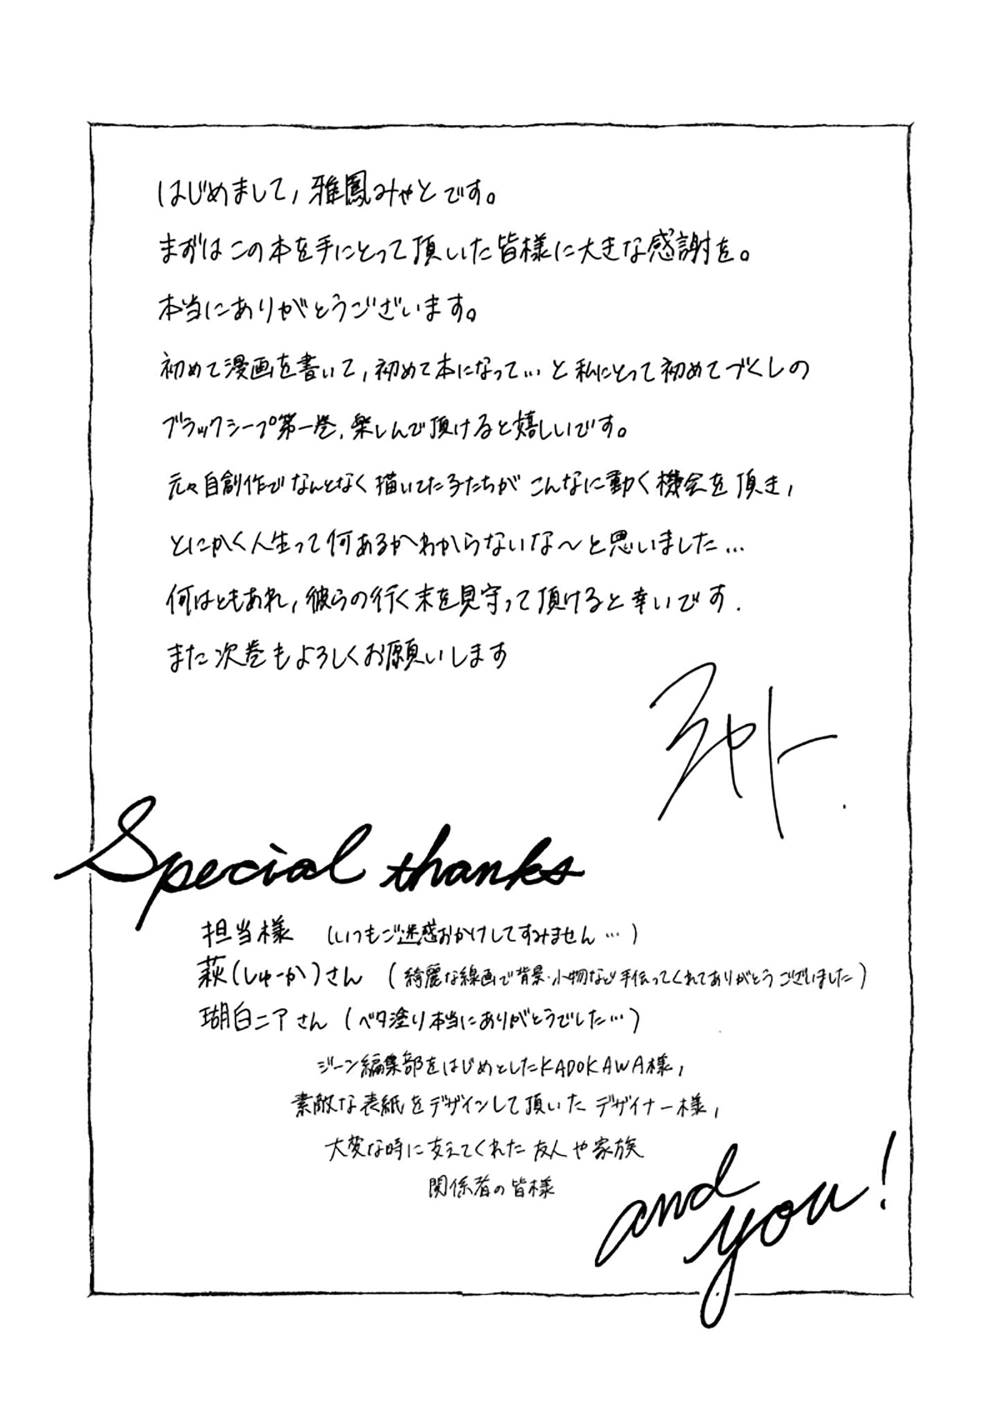 はじめまして、雅鳳みやとです。
まずはこの本を手にとって頂いた皆様に大きな感謝を。
本当にありがとうございます。
初めて漫画を書いて、初めて本になって…と私にとって初めてづくしの
ブラックシープ第一巻、楽しんで頂けると嬉しいです。
元々自創作でなんとなく描いてた子たちがこんなに動く機会を頂き、
とにかく人生って何あるかわからないな〜と思いました…
何はともあれ、彼らの行く末を見守って頂けると幸いです.
また次巻もよろしくお願いします
みやト.
Special thanks
担当様 (いつもご迷惑おかけしてすみません…)
萩(しゅーか)さん (綺麗な線画で背景・小物など手伝ってくれてありがとうございました)
瑚白ニアさん (ベタ塗り本当にありがとうでした…)
ジーン編集部をはじめとしたKADOKAWA様、
素敵な表紙をデザインして頂いたデザイナー様、
大変な時に支えてくれた友人や家族
関係者の皆様
and
you!